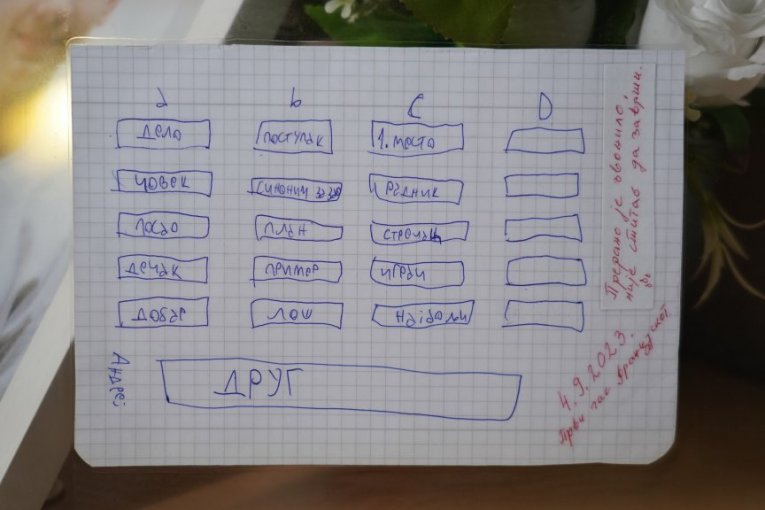 a b C D
ДЕЛО ПОСТУПАК 1. место
ЧОВЕК СИНОНИМ РАДНИК
ПОСАО ПЛАН СТРЕЛАЦ
ДЕЧАК ПРИМЕР ИГРАЧ
ДОБАР ЛОШ НАЈБОЉИ
ДРУГ
Андреј
Прерано је звонило,
није стигао да заврши.
4.9.2023.
Први час